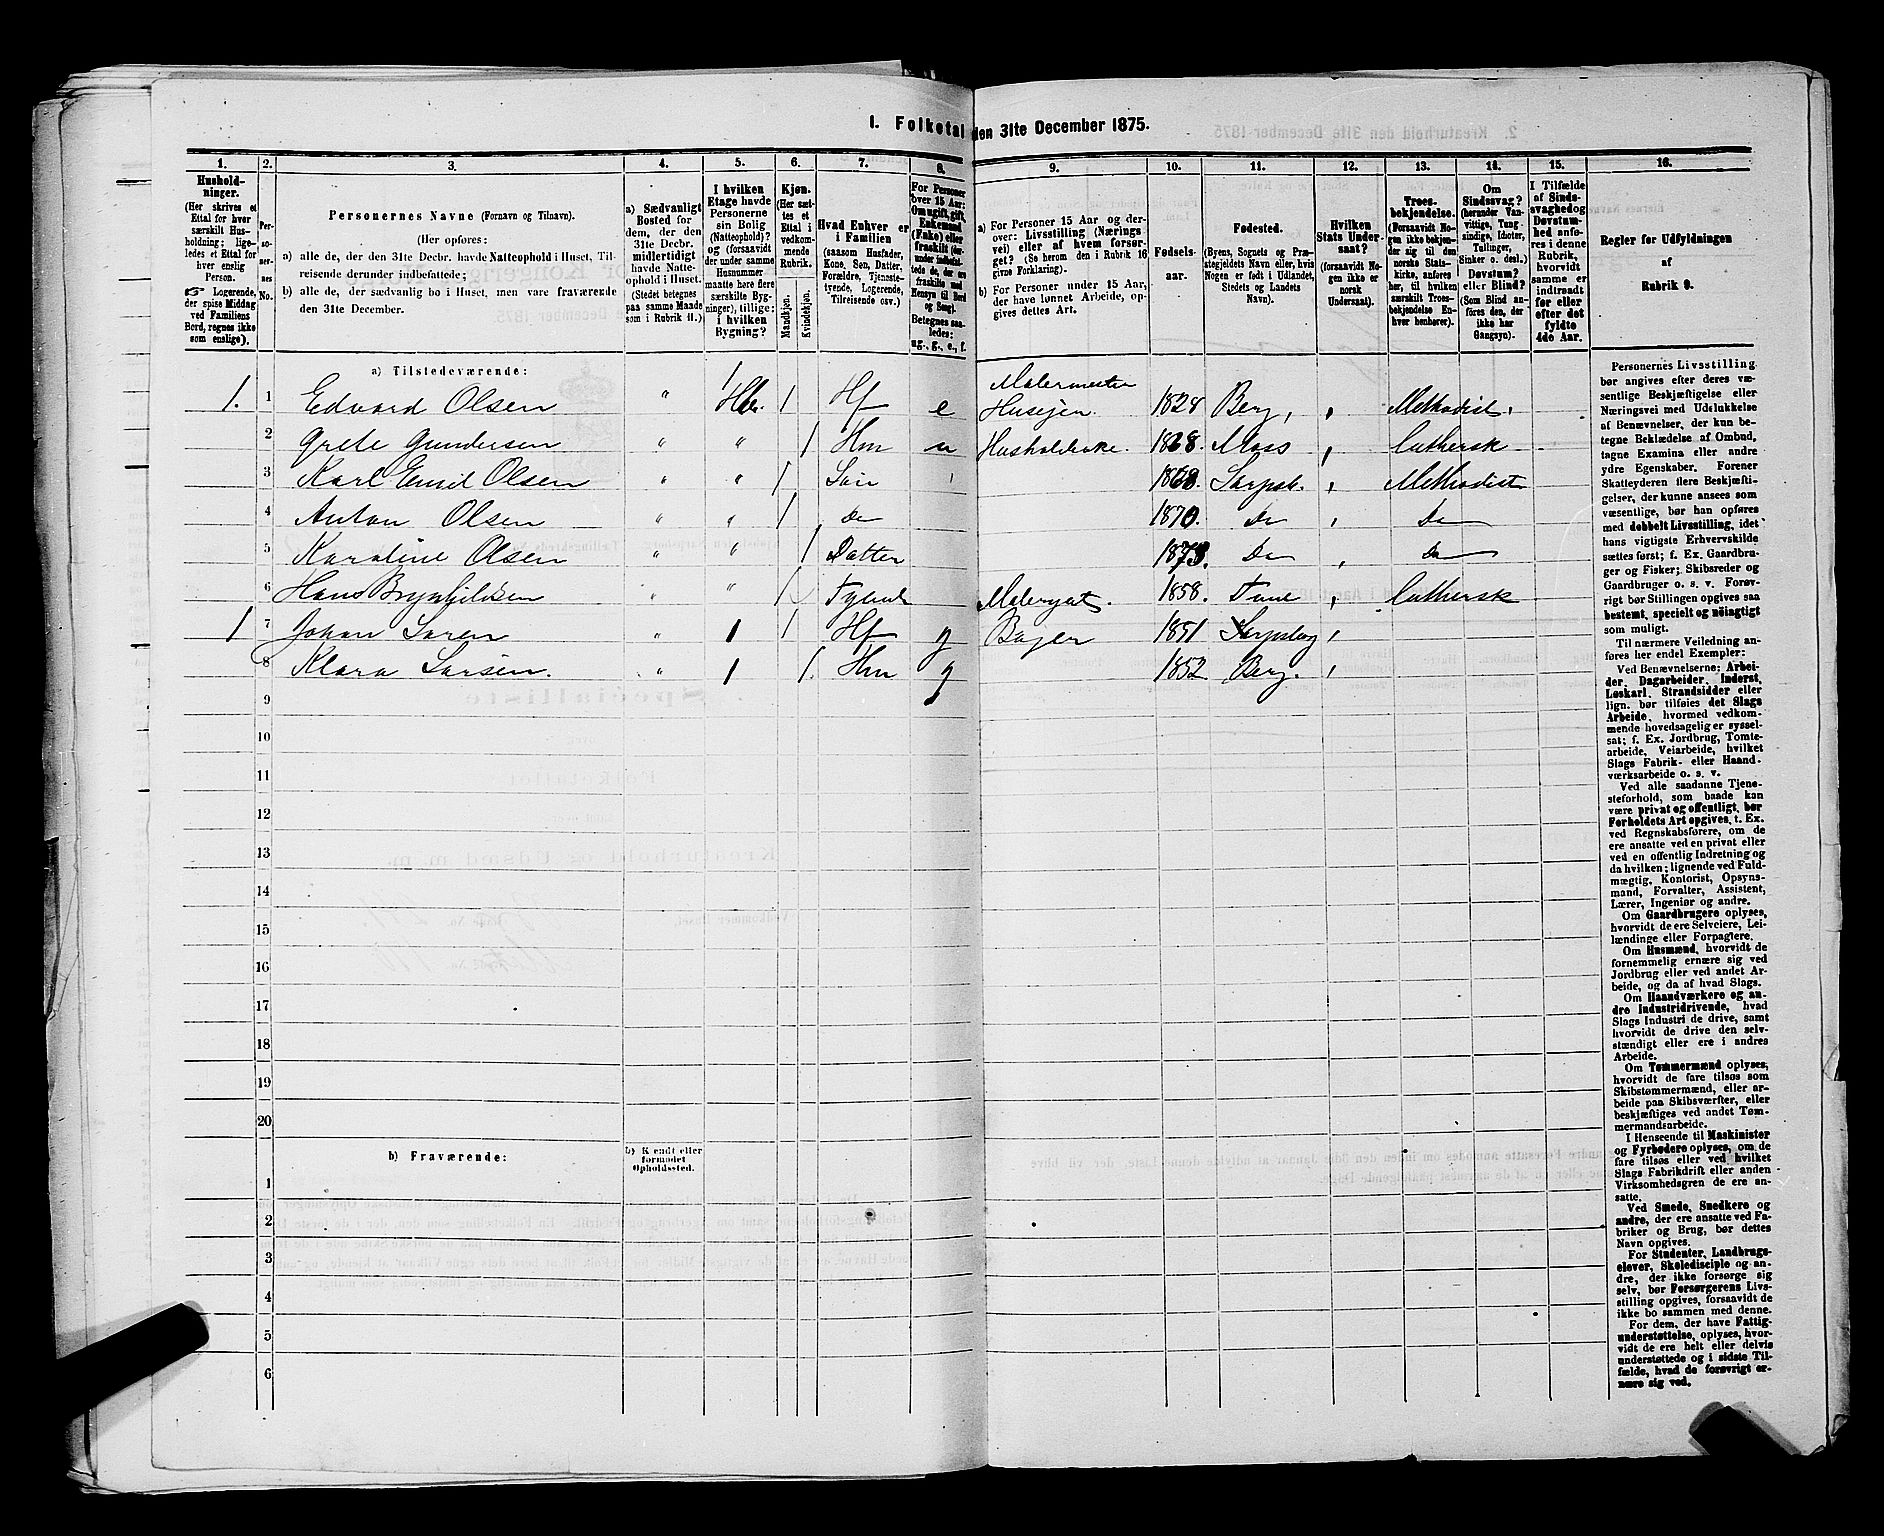 1. Folketal den 31te December 1875.
1. 2. 3. 4. 5. 6. 7. 8. 9. 10. 11. 12. 13. 14. 15. 16.
Hushold-
ninger.
(Her skrives et
Ettal for hver
særskilt Hus-
holdning; lige-
ledes et Ettal for
hver enslig
Person.
☞ Logerende,
der spise Middag
ved Familiens
Bord, regnes ikke
som enslige).
Per-
so-
ner-
nes
No.
Personernes Navne (Fornavn og Tilnavn).
(Her opføres:
a) alle de, der den 31te Decbr. havde Natteophold i Huset, Til-
reisende derunder indbefattede;
b) alle de, der sædvanlig bo i Huset, men vare fraværende
den 31te December.
a) Sædvanligt
Bosted for
dem, der den
31te Decbr.
midlertidigt
havde Natte-
ophold i Huset.
(Stedet betegnes
paa samme Maade
som i Rubrik 11.)
I hvilken
Etage havde
Personerne
sin Bolig
(Natteophold)?
og (forsaavidt
der under samme
Husnummer
maatte høre flere
særskilte Byg-
ninger), tillige:
i hvilken
Bygning?
Kjøn.
(Her sæt-
tes et
Ettal i
vedkom-
mende
Rubrik.
Mandkjøn.
Kvindekjøn.
Hvad Enhver er
i Familien
(saasom Husfader,
Kone, Søn, Datter,
Forældre, Tjeneste-
tyende, Logerende,
Tilreisende osv.)
For Personer
over 15 Aar:
Om ugift, gift,
Enkemand
(Enke) eller
fraskilt (der-
under indbefat-
tede de, der ere
fraskilte med
Hensyn til Bord
og Seng).
Betegnes saa-
ledes:
ug., g., e., f.
a) For Personer 15 Aar og der-
over: Livsstilling (Nærings-
vei) eller af hvem forsør-
get? (Se herom den i Rubrik 16
givne Forklaring).
b) For Personer under 15 Aar,
der have lønnet Arbeide, op-
gives dettes Art.
Fødsels-
aar.
Fødested.
(Byens, Sognets og Præ-
stegjeldets Navn eller, hvis
Nogen er født i Udlandet,
Stedets og Landets
Navn).
Hvilken
Stats Under-
saat?
(forsaavidt No-
gen ikke er
norsk
Undersaat).
Troes-
bekjendelse.
(Forsaavidt No-
gen ikke bekjen-
der sig til den
norske Stats-
kirke, anføres
her, til hvilken
særskilt Troes-
bekjendelse En-
hver henhører).
Om
Sindssvag?
(herunder Van-
vittige, Tung-
sindige, Idioter,
Tullinger,
Sinker o. desl.)
Døvstum?
eller Blind?
(Som Blind an-
føres den, der
ikke har
Gangsyn).
I Tilfælde
af Sinds-
svaghed og
Døvstum-
hed anfø-
res i denne
Rubrik,
hvorvidt
samme er
indtraadt
før eller
efter det
fyldte
4de Aar.
Regler for Udfyldningen
af
Rubrik 9.
a) Tilstedeværende:
1. 1 Edvard Olsen " 1 1 Hf e Malermester Husejer. 1828 Berg, , Methodist.
2 Grete Gundersen " " 1 Hm u 1868. Moss , luthersk
3 Karl Emil Olsen " " 1 Søn 1868. Sarpsb. , Methodist
4 Anton Olsen " " 1 Do 1870. Do , Do
5 Karoline Olsen " " 1 Datter 1873. Do , Do
6 Hans Brynhildsen " " 1 Tyende 1858. Tune , luthersk
1 7 Johan " 1 1 Hf g Bager 1851 Sarpsborg ,
8 Klara Larsen. " 1 1. Hm g 1852 Berg. ,
9
10
11
12
13
14
15
16
17
18
19
20
b) Fraværende:
b) Kjendt eller
formodet
Opholdssted.
1
2
3
4
5
6
Personernes Livsstilling
bør angives efter deres væ-
sentlige Beskjæftigelse eller
Næringsvei med Udelukkelse
af Benævnelser, der kun be-
tegne Beklædelse af Ombud,
tagne Examina eller andre
ydre Egenskaber. Forener
Skatteyderen flere Beskjæfti-
gelser, der kunne ansees som
væsentlige, bør han opføres
med dobbelt Livsstilling, idet
hans vigtigste Erhvervskilde
sættes først; f. Ex. Gaardbru-
ger og Fisker; Skibsreder og
Gaardbruger o. s. v. Forøv-
rigt bør Stillingen opgives saa
bestemt, specielt og nøiagtigt
som muligt.
Til nærmere Veiledning an-
føres her endel Exempler:
Ved Benævnelserne: Arbei-
der, Dagarbeider, Inderst,
Løskarl, Strandsidder eller
lign. bør tilføies det Slags
Arbeide, hvormed vedkom-
mende hovedsagelig er syssel-
sat; f. Ex. Jordbrug, Tomte-
arbeide, Veiarbeide, hvilket
Slags Fabrik- eller Haand-
værksarbeide o. s. v.
Ved alle saadanne Tjene-
steforhold, som baade kan
være privat og offentligt, bør
Forholdets Art opgives, t. Ex.
ved Regnskabsførere, om de
ere ansatte ved en privat eller
ved en offentlig Indretning og
da hvilken; lignende ved Fuld-
mægtig, Kontorist, Opsyns-
mand, Forvalter, Assistent,
Lærer, Ingeniør og andre.
Om Gaardbrugere oplyses,
hvorvidt de ere Selveiere, Lei-
lændinge eller Forpagtere.
Om Husmænd, hvorvidt de
fornemmelig ernære sig ved
Jordbrug eller ved andet Ar-
beide, og da af hvad Slags.
Om Haandværkere og an-
dre Industridrivende, hvad
Slags Industri de drive, samt
hvorvidt de drive den selv-
stændigt eller ere i andres
Arbeide.
Om Tømmermænd oplyses,
hvorvidt de fare tilsøs som
Skibstømmermænd, eller ar-
beide paa Skibsværfter, eller
beskjæftiges ved andet Tøm-
mermandsarbeide.
I Henseende til Maskinister
og Fyrbødere oplyses, om de
fare tilsøs eller ved hvilket
Slags Fabrikdrift eller anden
Virksomhedsgren de ere an-
satte.
Ved Smede, Snedkere og
andre, der ere ansatte ved Fa-
briker og Brug, bør dettes
Navn opgives.
For Studenter, Landbrugs-
elever, Skoledisciple og an-
dre, der ikke forsørge sig
selv, bør Forsørgerens Livs-
stilling opgives, forsaavidt de
ikke bo sammen med denne.
For dem, der have Fattig-
understøttelse, oplyses, hvor-
vidt de ere helt eller delvis
understøttede og i sidste Til-
fælde, hvad de forøvrigt er-
nære sig ved.